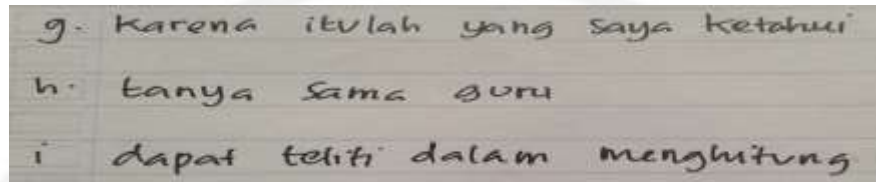 g. Karena itulah yang saya ketahui
h. tanya sama guru
i dapat teliti dalam menghitung